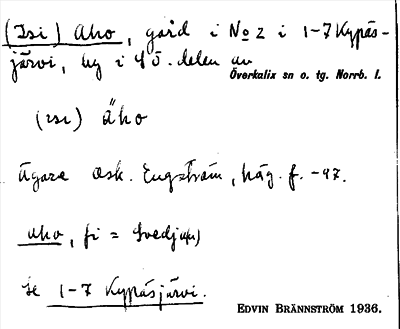 (Isi) Aho, gård i No 2 i 1-7 Kypäs-
järvi, by i ö. delen av
Överkalix sn o. tg. Norrb. l.
(isi) äho
Ägare Osk. Engström, häg. f. -97.
aho, fi = svedja(n)
Se 1-7 Kypäsjärvi.
EDVIN BRÄNNSTRÖM 1936.